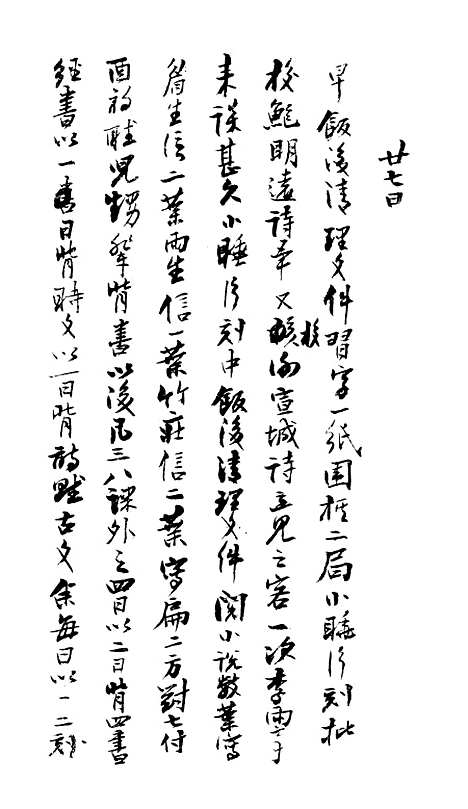 廿七日
早飯後清理文件習字一紙圍棋二局小睡片刻批
校鮑明遠詩畢又校謝宣城詩立見之客一次李雨亭
来談甚久小睡片刻中飯後清理文件閱小說數葉寫
眉生信二葉雨生信一葉竹莊信二葉寫扁二方對七付
酉初聽兒甥輩背書以後凡三八課外之四日以二日背四書
經書以一日背時文以一日背詩賦古文余每日以一二刻